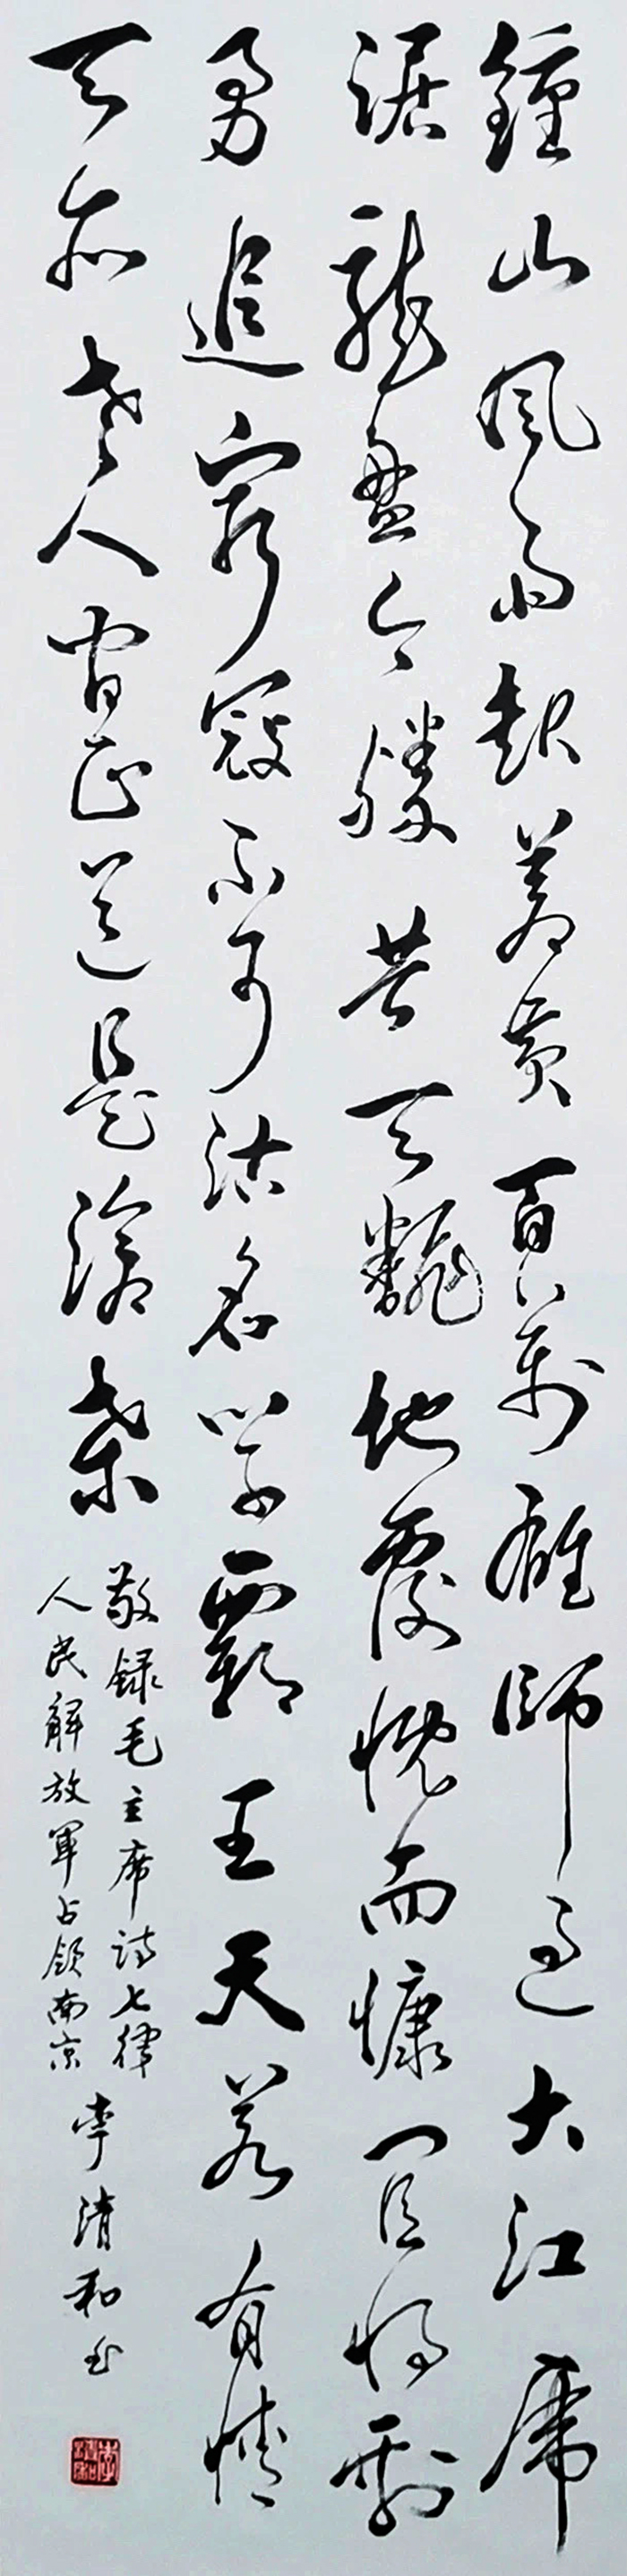 鍾山風雨起蒼黃百萬雄師過大江虎
踞龍盤今勝昔天翻地覆慨而慷宜將剩
勇追窮寇不可沽名學霸王天若有情
天亦老人間正道是滄桑
敬録毛主席詩七律
人民解放軍占領南京
李清和書